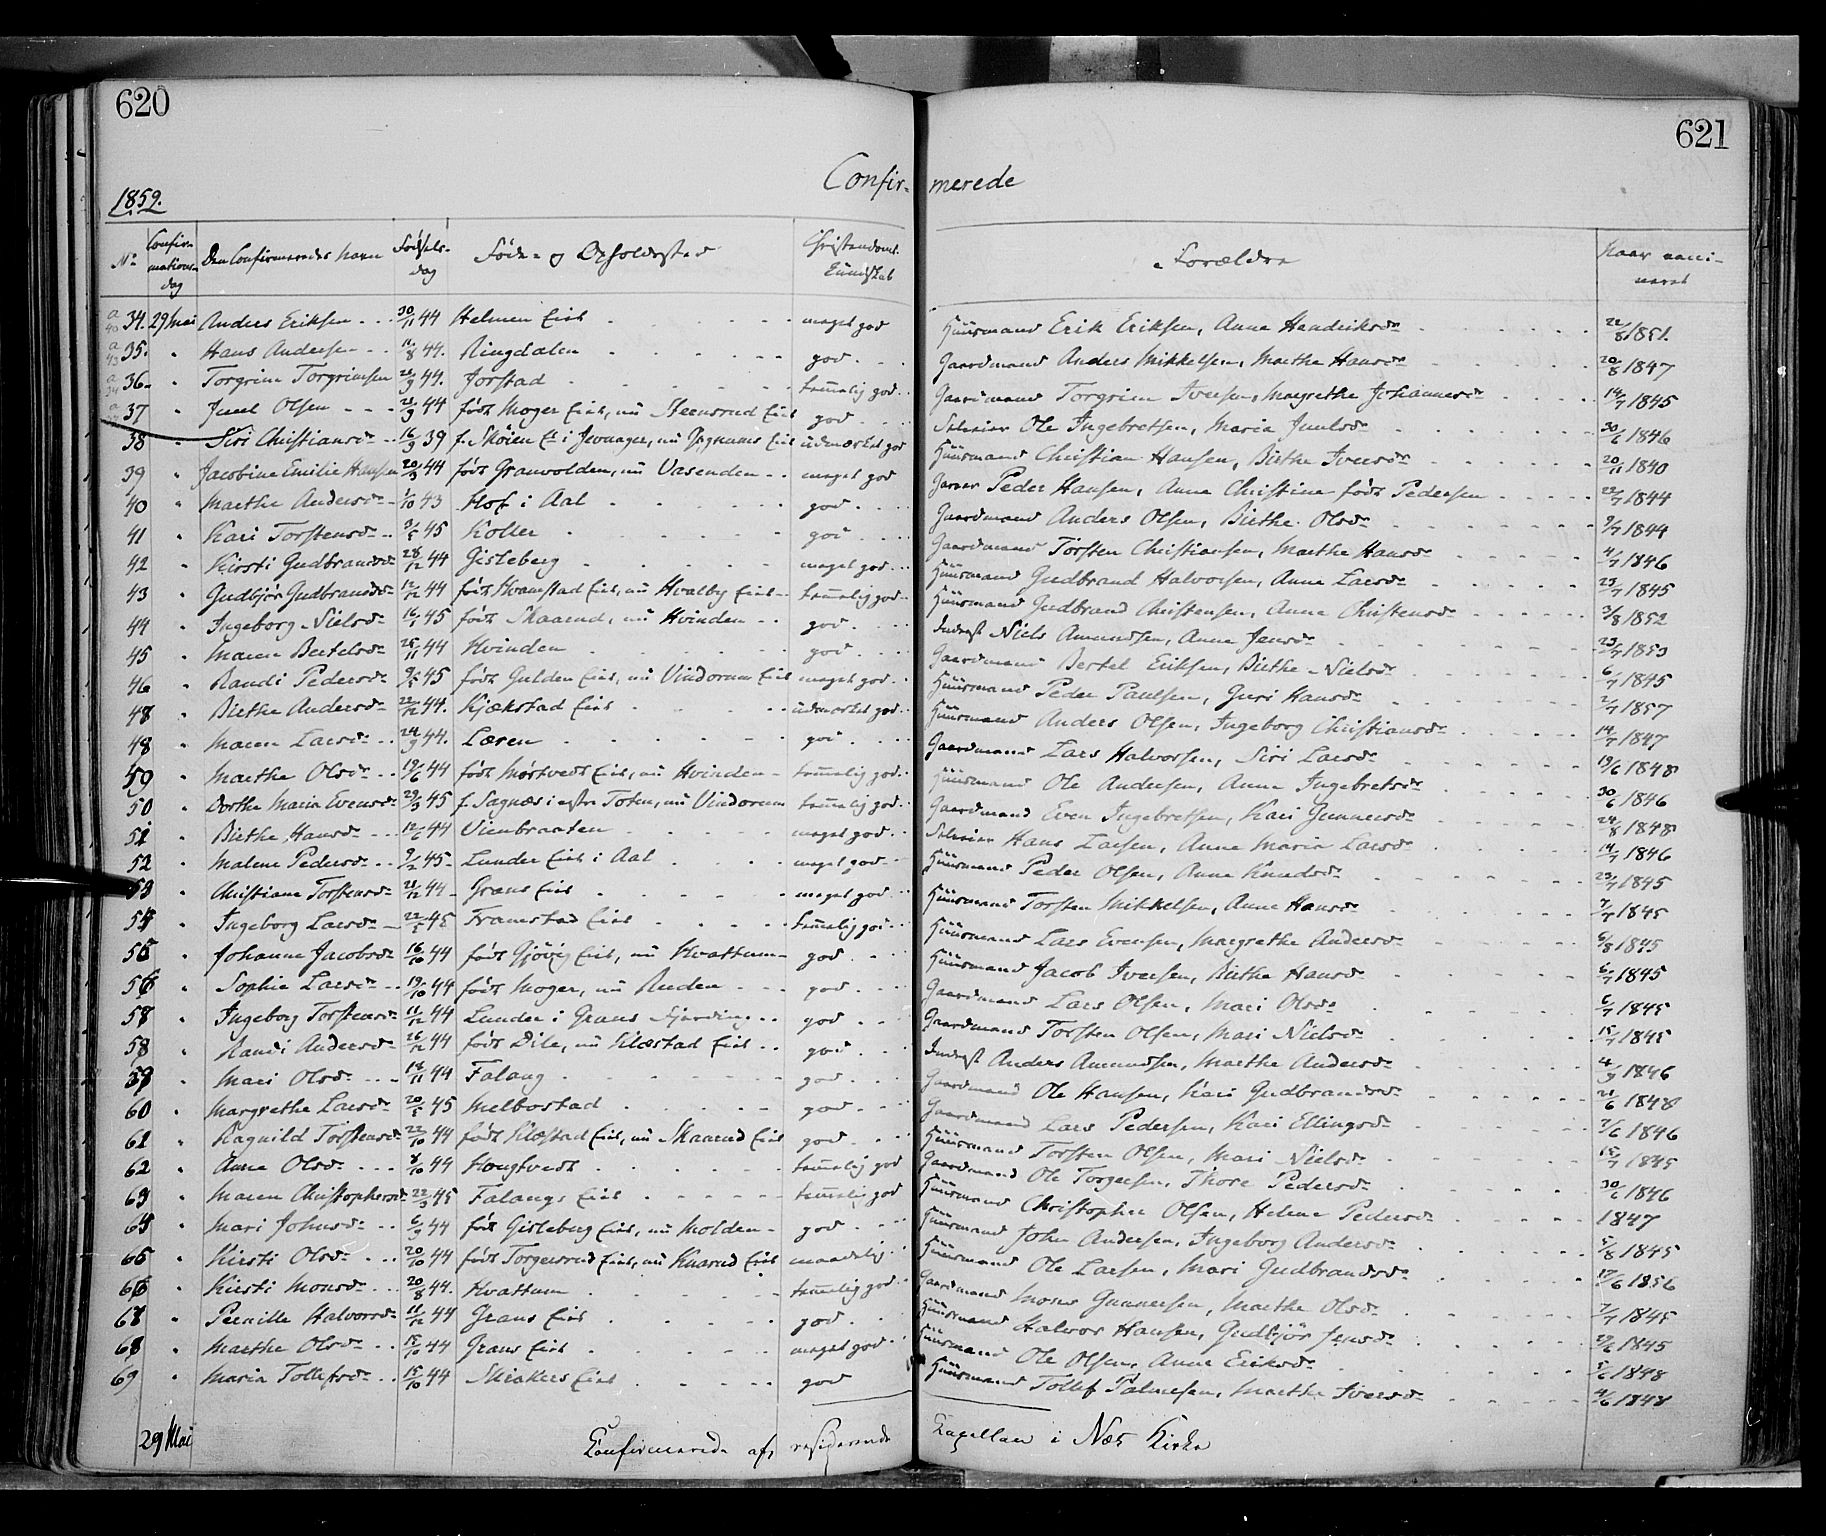 620
621
Confir- merede
1859.
No Confirmations dag Den Confirmeredes Navn Fødsels- dag Føde- og Opholdssted Christendoms Kundskab Forældre Naar vacci- neret
34. 29 Mai Anders Eriksen 30/11 44 Helmen Eiet meget god Huusmand Erik Eriksen, Anne Hendriksd. 22/8 1851.
35. " Hans Andersen 11/8 44. Ringdalen god Gaardmand Anders Mikkelsen, Marthe Hansd. 20/8 1847
36. " Torgrim Torgrimsen 44. Jorstad temmelig god Gaardmand Torgrim Iversen, Margrethe Johannesd. 14/7 1845
37 " Juul Olsen 44 født Moger Eiet, nu Steensrud Eiet god Ole Ingebretsen, Maria Juulsd. 30/6 1846
38 " Siri Christiansd. 16/9 39 f. Skøien Et i Jevnager, nu Eiet udmærket god Huusmand Christian Hansen, Birthe Iversd. 20/11 1840
39 " Jacobine Emilie Hansen 20/3 44 født Granvolden, nu Vasenden meget god Peder Hansen, Anne Christine født Pedersen 22/7 1844
40 " Marthe Andersd. 43 Hof i Aal god Gaardmand Anders Olsen, Birthe Olsd. 9/7 1844
41 " Kari Torstensd. 45 Koller god Gaardmand Torsten Christiansen, Marthe Hansd. 4/7 1846
42 " Kirsti Gudbrandsd. 28/12 44 Gisleberg meget god Huusmand Gudbrand Halvorsen, Anne Larsd. 23/7 1845
43 " Gudbjør Gudbrandsd. 12/12 44 født Hvamstad Eiet, nu Hvalby Eiet temmelig god Huusmand Gudbrand Christensen, Anne Christensd. 3/8 1852
44 " Ingeborg Nielsd. 16/1 45 født Skaarud, nu Hvinden god Inderst Niels Amundsen, Anne Jensd. 1853
45 " Maren Bertelsd. 25/11 44 Hvinden god Gaardmand Bertel Eriksen, Birthe Nielsd. 6/7 1845
46 " Randi Pedersd. 45 født Gulden Eiet, nu Vindorum Eiet meget god Huusmand Peder Paulsen, Guri Hansd. 2/7 1857
48 " Birthe Andersd. 22/12 44. Kjækstad Eiet udmærket god Huusmand Anders Olsen, Ingeborg Christiansd. 14/7 1847
48 " Maren Larsd. 24/9 44. Læren god Gaardmand Lars Halvorsen, Siri Larsd. 19/6 1848
59 " Marthe Olsd. 19/6 44 født Mortvedt Eiet, nu Hvinden temmelig god Huusmand Ole Andersen, Anne Ingebretsd. 30/6 1846
50 " Dorthe Maria Evensd. 29/3 45 f. Sagnæs i østre Toten, nu Vindorum temmelig god Gaardmand Even Ingebretsen, Kari Gunnersd. 24/8 1848
51 " Birthe Hansd. 12/6 44 Vienbraaten meget god Hans Larsen, Anne Maria Larsd. 14/7 1846
52 " Malene Pedersd. 9/2 45 Lunder Eiet i Aal meget god Huusmand Peder Olsen, Anne Knudsd. 23/7 1845
53 " Christiane Torstensd. 21/12 44 Grans Eiet meget god Huusmand Torsten Mikkelsen, Anne Hansd. 7/7 1845
54 " Ingeborg Larsd. 22/5 45 Framstad Eiet temmelig god Huusmand Lars Evensen, Margrethe Andersd. 5/8 1845
55 " Johanne Jacobsd. 16/10 44 født Gjøvig Eiet, nu Hvattum god Huusmand Jacob Iversen, Birthe Hansd. 6/7 1845
56 " Sophie Larsd. 19/10 44 født Moger, nu Ruden god Gaardmand Lars Olsen, Mari Olsd. 6/7 1845
57 " Ingeborg Torstensd. 11/12 44 Lunder i Grans Fjerding god Gaardmand Torsten Olsen, Mari Nielsd. 15/7 1845
58 " Randi Andersd. 26/12 44 født Dile, nu Klæstad Eiet god Inderst Anders Amundsen, Marthe Andersd. 4/9 1846
59 " Mari Olsd. 14/11 44 Falang god Gaardmand Ole Hansen, Kari Gudbrandsd. 21/6 1848
60 " Margrethe Larsd. 20/5 45 Melbostad god Gaardmand Lars Pedersen, Kari Ellingsd. 7/6 1846
61 " Ragnild Torstensd. 22/10 44 født Klæstad Eiet, nu Skaarud Eiet god Huusmand Torsten Olsen, Mari Nielsd. 15/7 1845
62 " Anne Olsd. 8/10 44 Hougtvedt temmelig god Gaardmand Ole Torgersen, Thore Pedersd. 30/6 1846
63 " Maren Christophersd. 22/3 45 Falangs Eiet temmelig god Huusmand Christopher Olsen, Helene Pedersd. 1847
64 " Mari Johnsd. 6/9 44 født Gisleberg Eiet, nu Molden god Huusmand John Andersen, Ingeborg Andersd. 5/8 1845
65 " Kirsti Olsd. 20/10 44 født Torgersrud Eiet, nu Knarud Eiet maadelig Huusmand Ole Larsen, Mari Gudbrandsd. 17/6 1856
66 " Kirsti Monsd. 20/8 44. Hvattum temmelig god Gaardmand Mons Gunnersen, Marthe Olsd. 7/7 1845
67 " Pernille Halvorsd. 11/12 44 Grans Eiet god Huusmand Halvor Hansen, Gudbjør Jensd. 1845
68 " Marthe Olsd. 44 Grans Eiet meget god Huusmand Ole Olsen, Anne Eriksd. 1848
69 " Maria Tollefsd. 15/10 44 Skiakers Eiet god Huusmand Tollef Palmesen, Marthe Iversd. 4/6 1848
29 Mai Confirmerede af residerende Kapellan i Næs Kirke